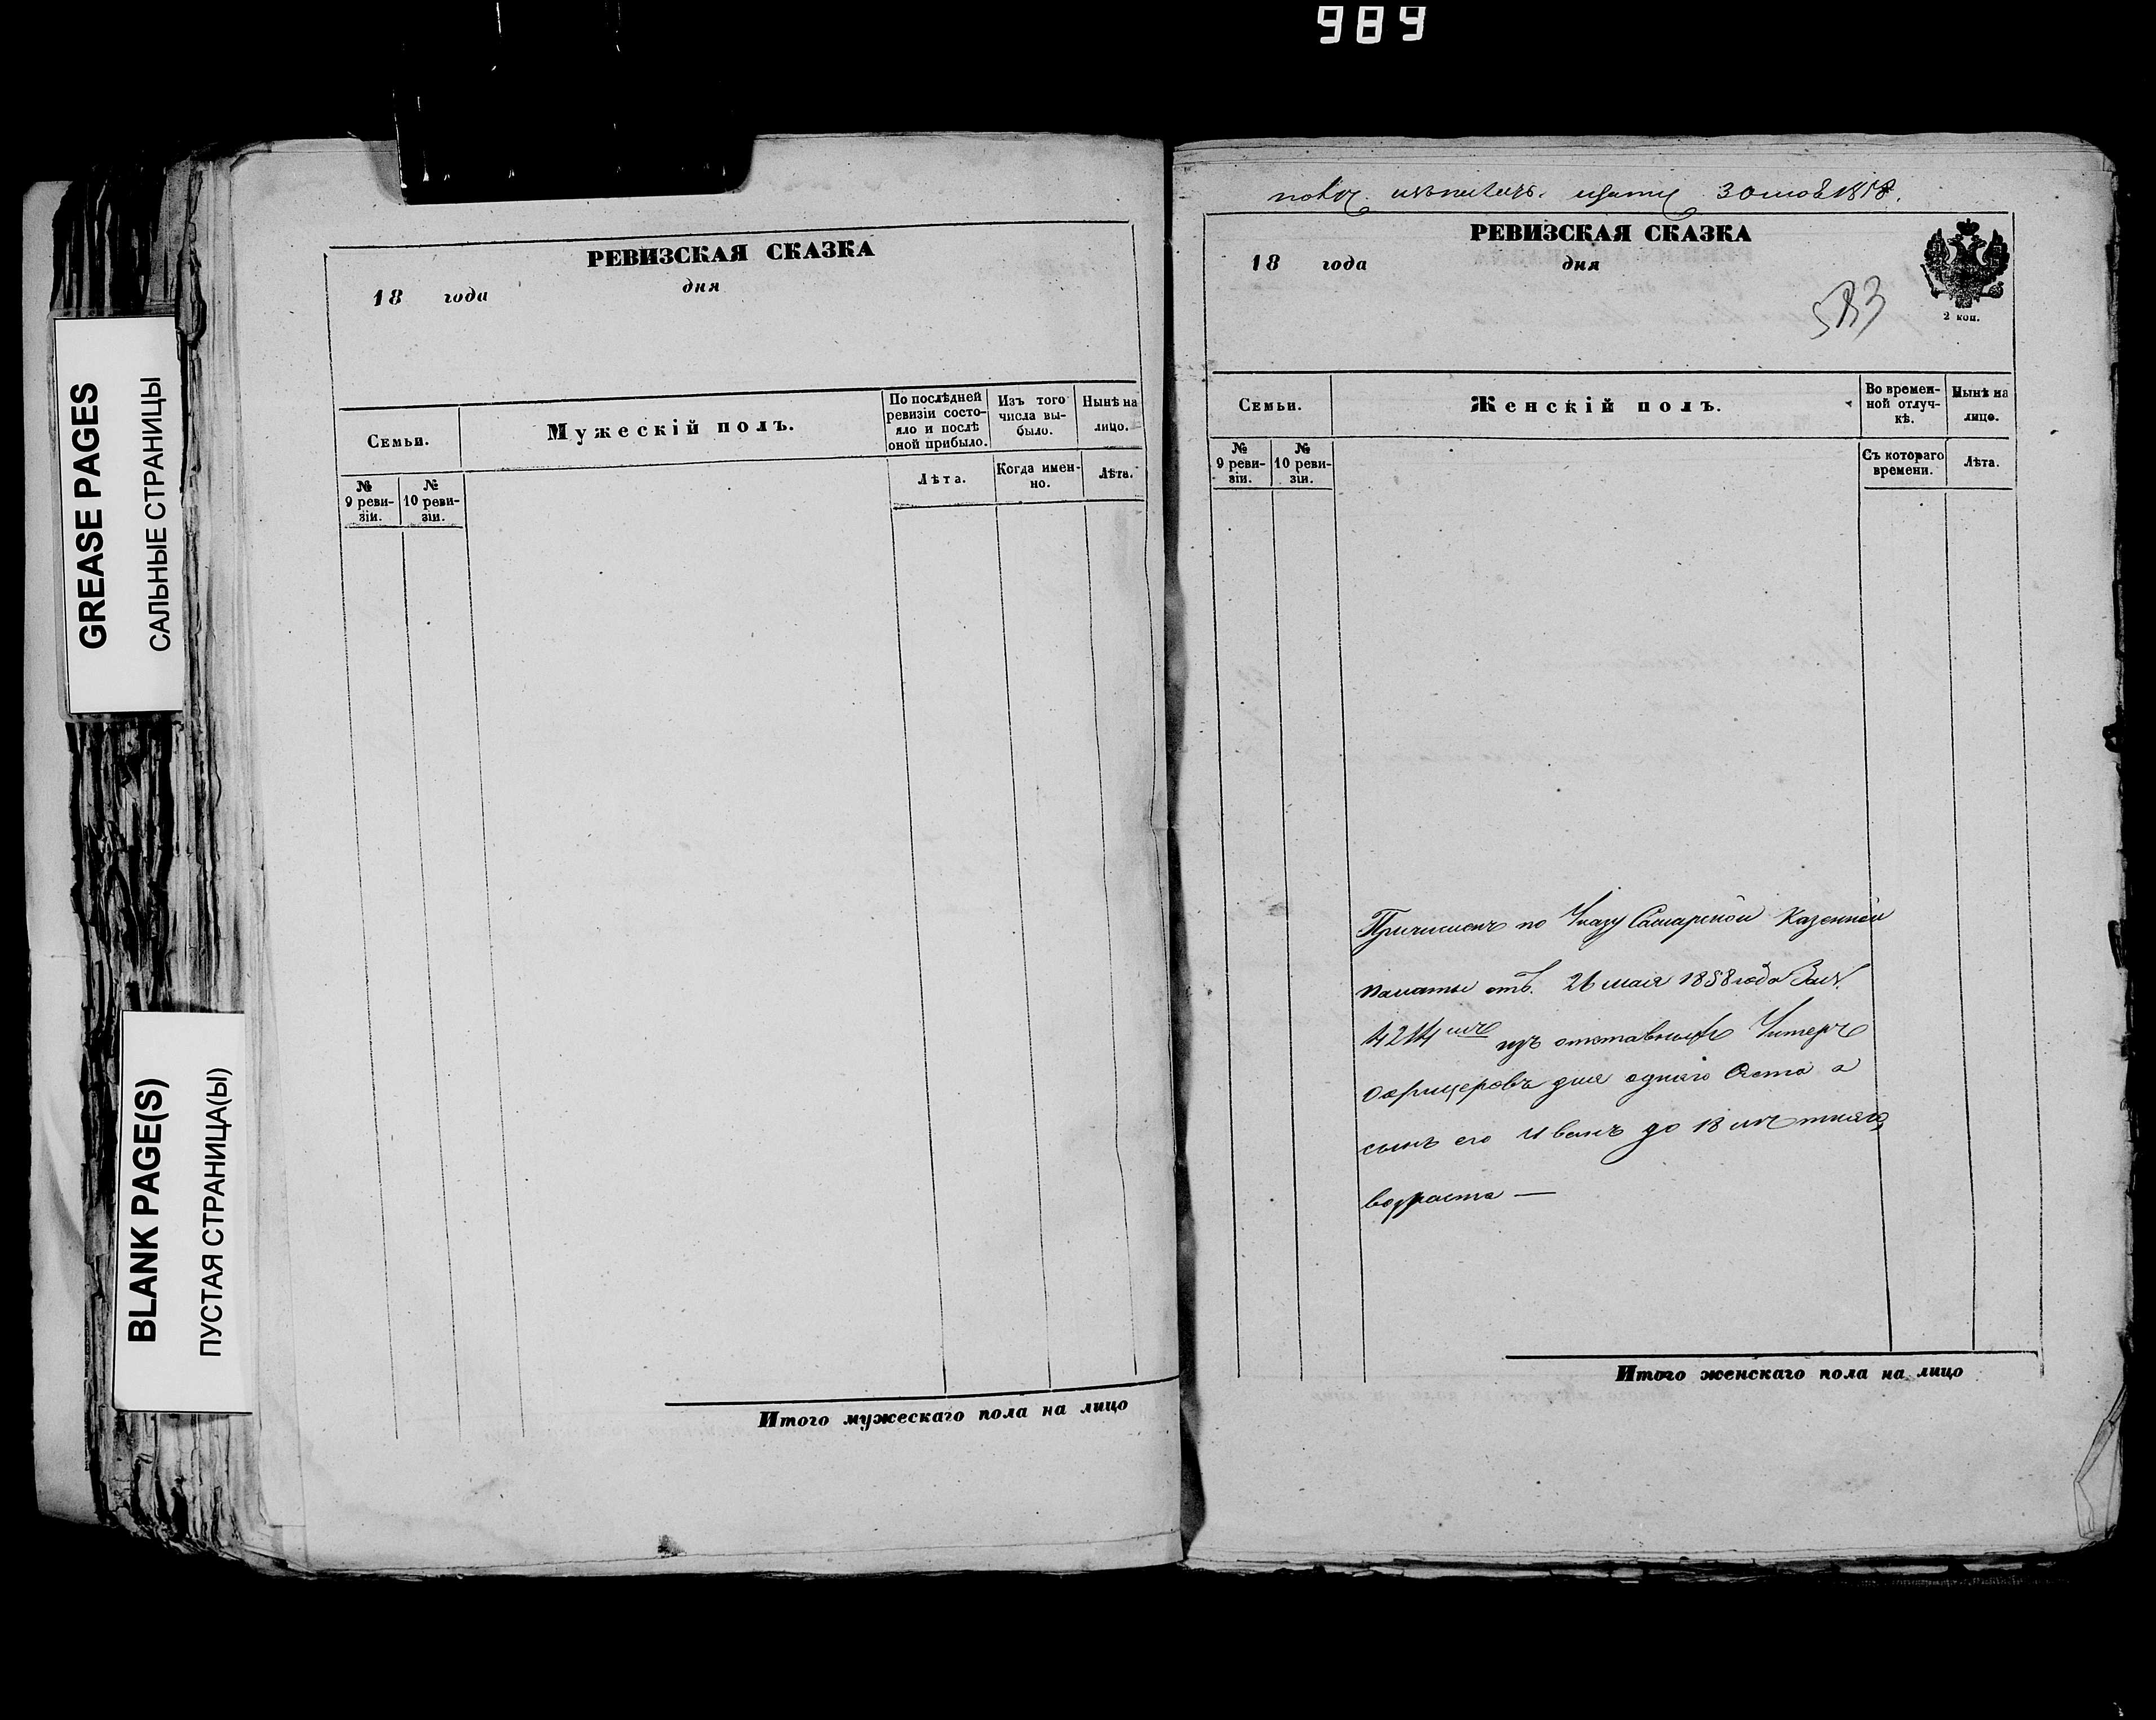 989
GREASE PAGES
САЛЬНЫЕ СТРАНИЦЫ
BLANK PAGE(S)
ПУСТАЯ СТРАНИЦА(Ы)
РЕВИЗСКАЯ СКАЗКА
18 года дня
Семьи.
Мужескій полъ.
По послѣдней ревизіи состо-
яло и послѣ оной прибыло.
Изъ того числа вы-
было.
Нынѣ на лицо.
№ 9 реви-
зіи.
№ 10 реви-
зіи.
Лѣта.
Когда имен-
но.
Лѣта.
Итого мужескаго пола на лицо
30 1858.
РЕВИЗСКАЯ СКАЗКА
18 года дня
2 коп.
Семьи.
Женскій полъ.
Во времен-
ной отлуч-
кѣ.
Нынѣ на лицо.
№ 9 реви-
зіи.
№ 10 реви-
зіи.
Съ котораго времени.
Лѣта.
Причисленъ по Указу Самарской Казенной
палаты отъ. 26 мая 1858 года За №
4214 изъ отставныхъ Унтеръ
Офицеровъ для однаго счета а
сынъ его Иванъ до 18 лѣтняго
возраста —
Итого женскаго пола на лицо